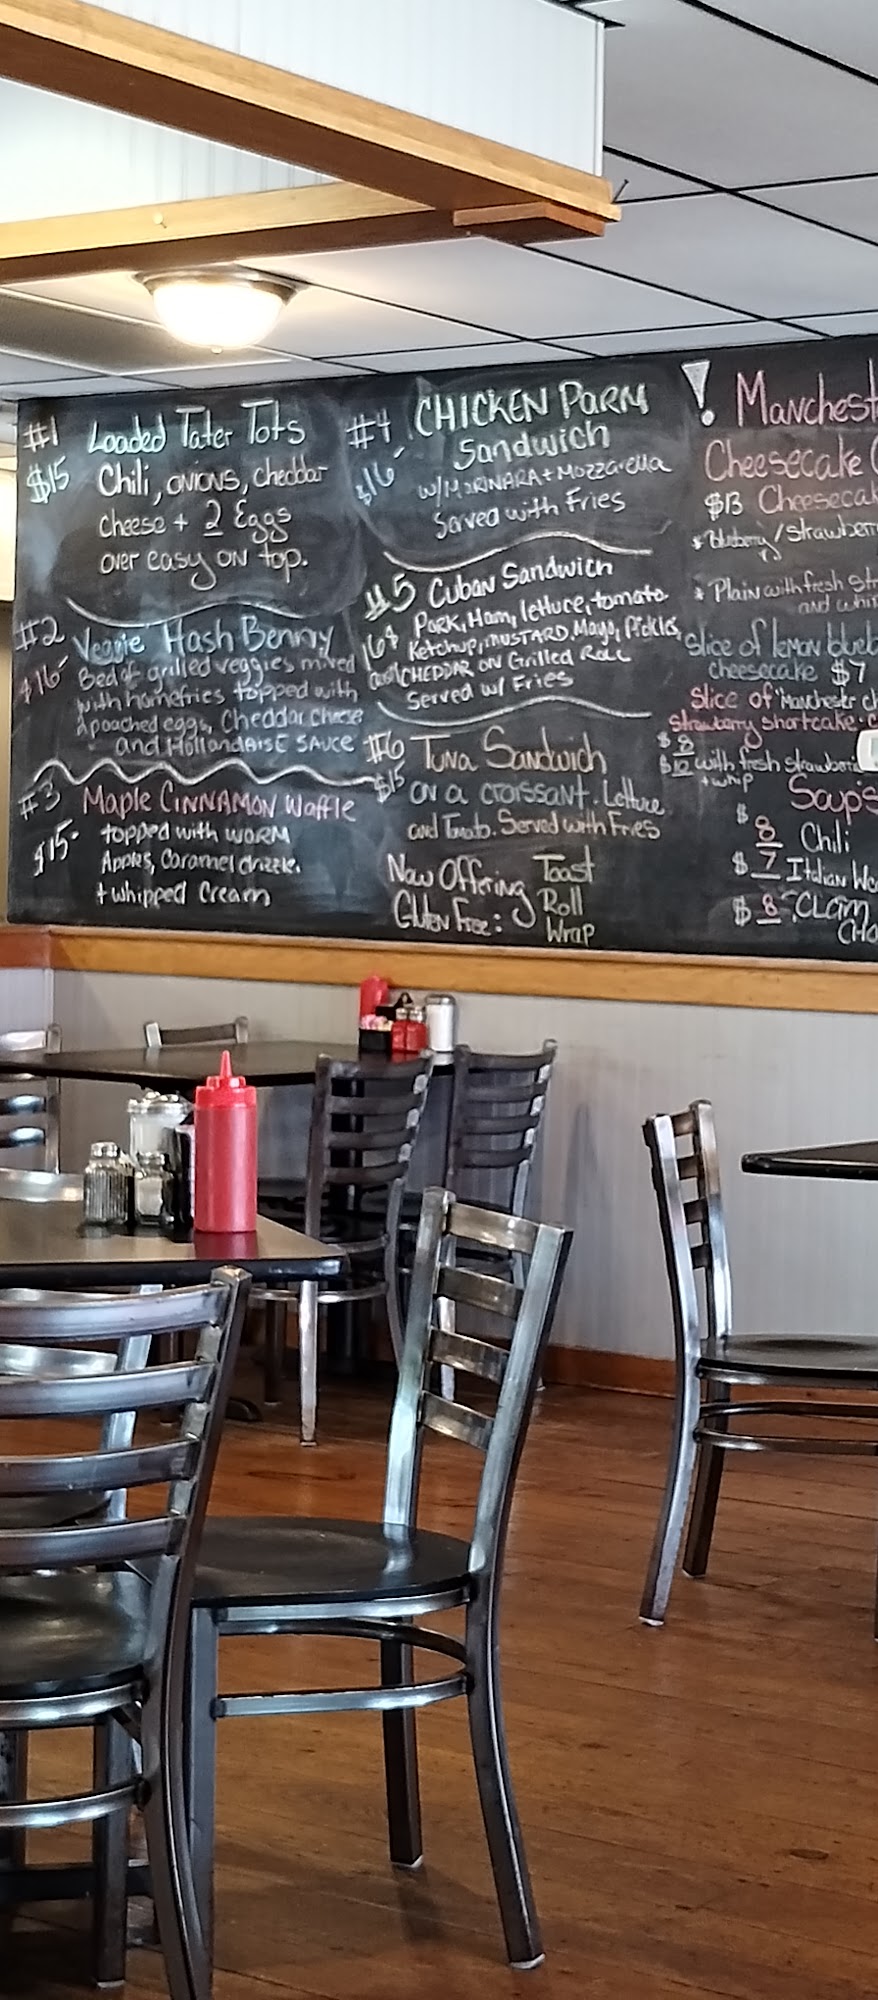 #1 Loaded Tater Tots
$15 Chili, onions, cheddar
cheese + 2 Eggs
over easy on top.
#2 Veggie Hash Benny
$16 Bed of grilled veggies mixed
with homefries topped with
2 poached eggs, Cheddar cheese
and Hollandaise Sauce
#3 Maple Cinnamon Waffle
$15- topped with warm
Apples, Caramel drizzle.
+ whipped Cream
#4 Chicken Parm
$16 Sandwich
w/Marinara + Mozzarella
Served with Fries
#5 Cuban Sandwich
Pork, Ham, lettuce, tomato
Ketchup, mustard, Mayo, Pickles,
CHEDDAR on Grilled Roll
Served w/ Fries
#6 Tuna Sandwich
$15 on a croissant. Lettuce
and Tomato. Served with Fries
Now Offering Toast
Gluten Free: Roll
Wrap
!
Manchest
Cheesecake C
$13 Cheesecak
* Blueberry/Strawberr
* Plain with fresh str
and whi
Slice of lemon blueb
cheesecake $7
Slice of Manchester ch
strawberry shortcake
$8
$10 with fresh strawberrie
+ whip
Soup's
$8 Chili
$7 Italian We
$8 CLAM
CHO